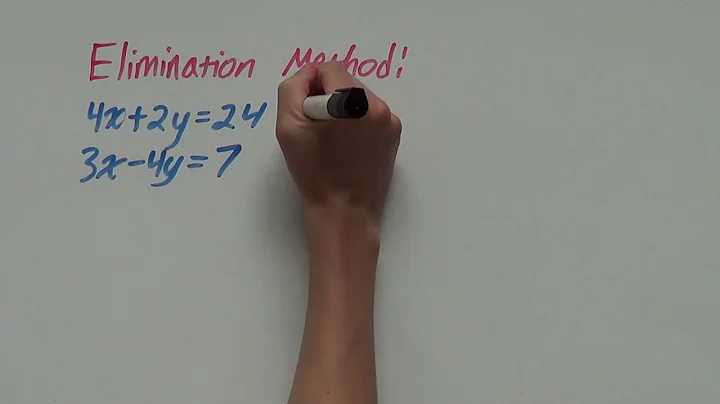 Elimination Method!
4x+2y=24
3x-4y=7